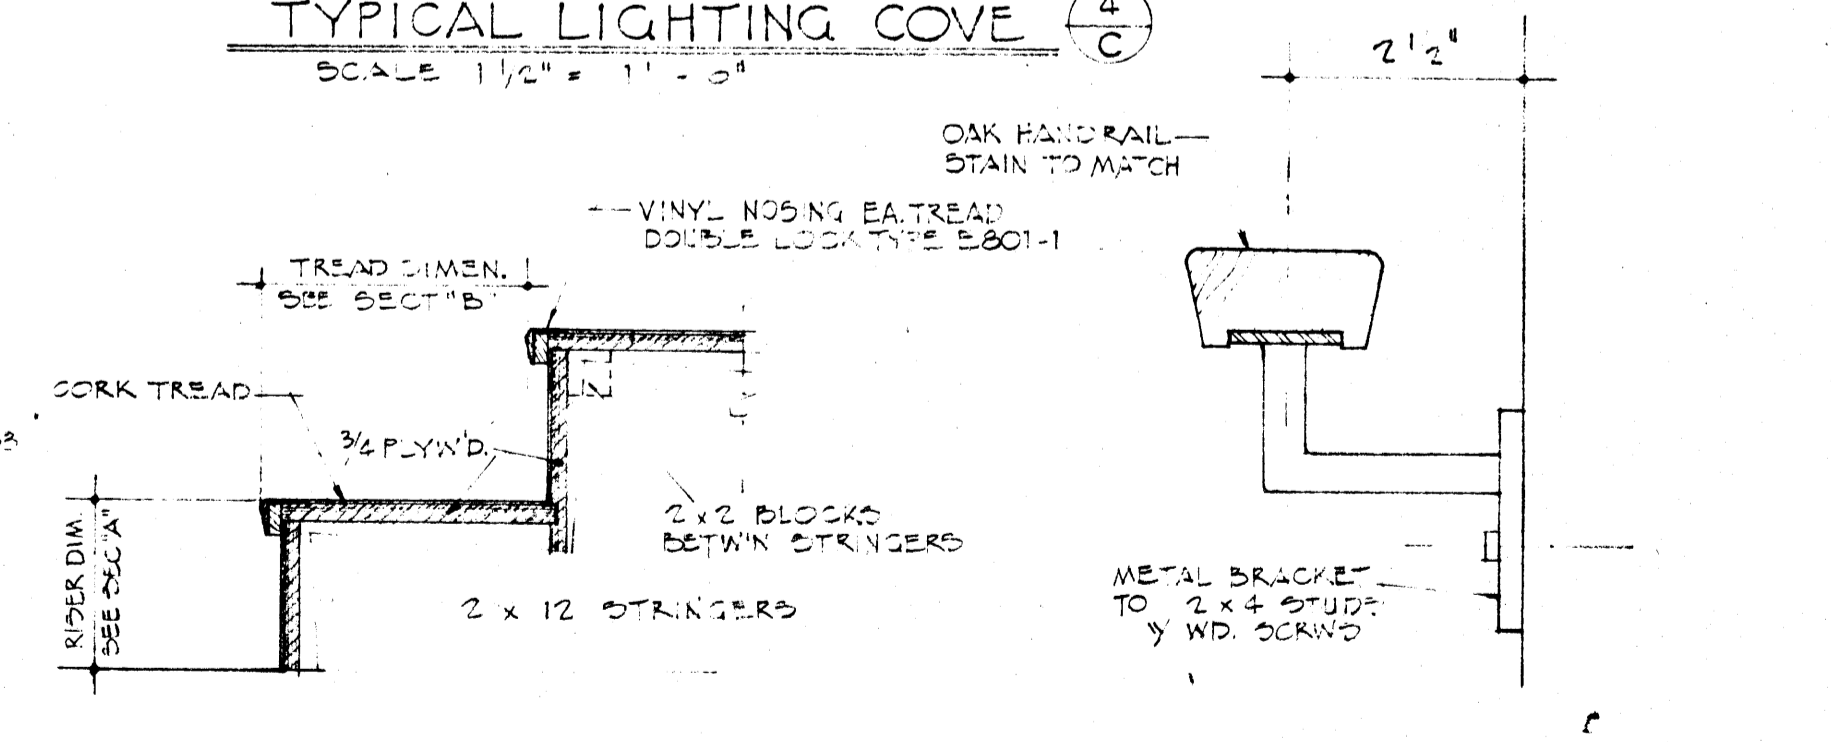 TYPICAL LIGHTING COVE
4
C
SCALE 1 1/2" = 1' - 0"
2 1/2"
OAK HANDRAIL
STAIN TO MATCH
VINYL NOSING EA. TREAD
DOUBLE LOCK TYPE E801-1
TREAD DIMEN.
SEE SECT "B"
CORK TREAD
3/4 PLYW'D.
2 x 2 BLOCKS
BETW'N STRINGERS
RISER DIM.
SEE SEC "A"
2 x 12 STRINGERS
METAL BRACKET
TO 2 x 4 STUDS
W/ WD. SCRWS